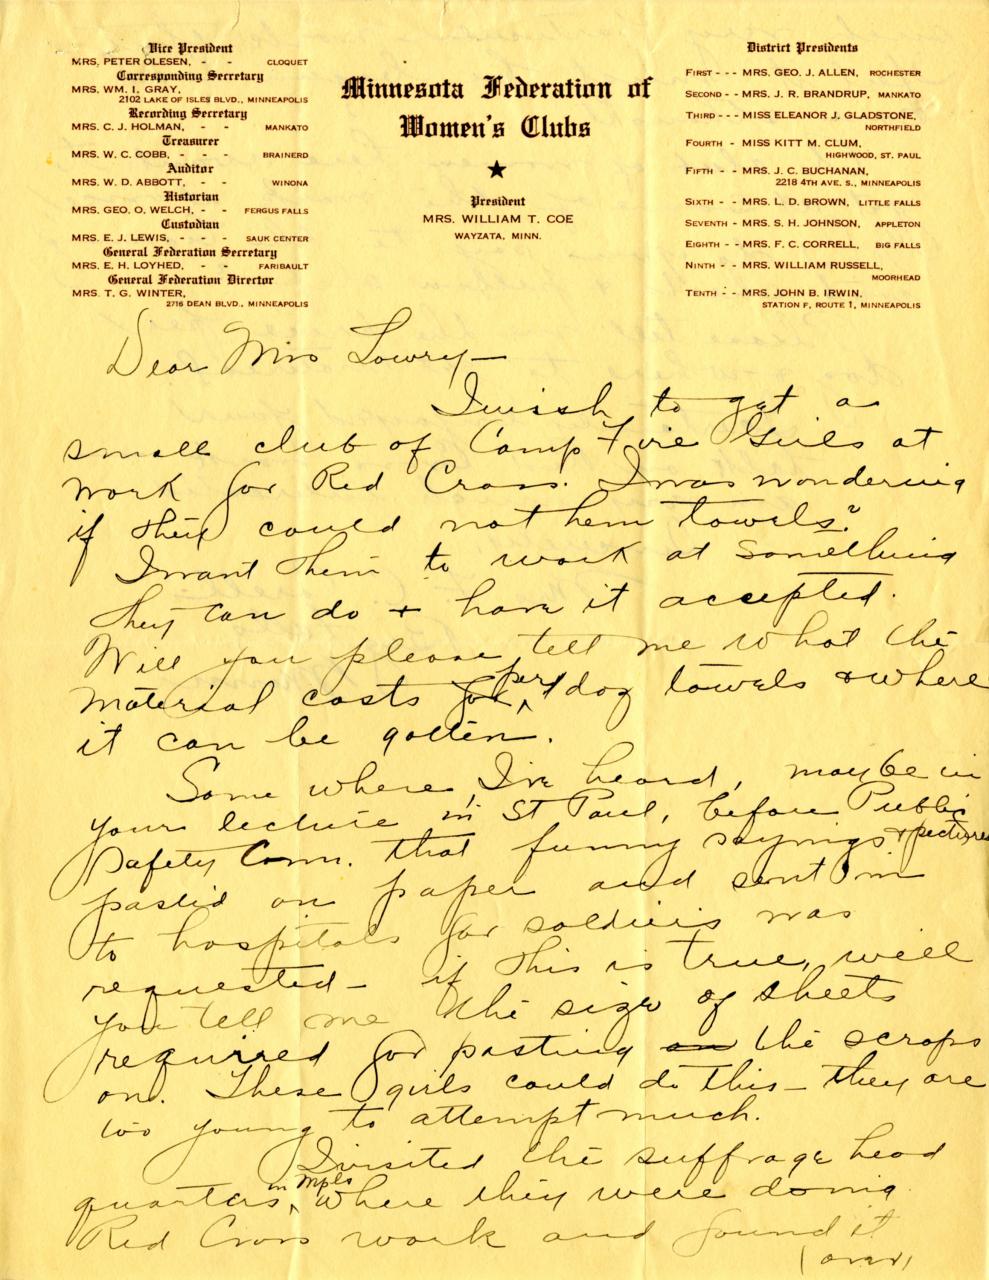 Vice President
MRS. PETER OLESEN, - - CLOQUET
Corresponding Secretary
MRS. WM. I. GRAY,
2102 LAKE OF ISLES BLVD., MINNEAPOLIS
Recording Secretary
MRS. C. J. HOLMAN, - - MANKATO
Treasurer
MRS. W. C. COBB, - - - BRAINERD
Auditor
MRS. W. D. ABBOTT, - - WINONA
Historian
MRS. GEO. O. WELCH, - - FERGUS FALLS
Custodian
MRS. E. J. LEWIS, - - - SAUK CENTER
General Federation Secretary
MRS. E. H. LOYHED, - - FARIBAULT
General Federation Director
MRS. T. G. WINTER,
2716 DEAN BLVD., MINNEAPOLIS
Minnesota Federation of
Women's Clubs
★
President
MRS. WILLIAM T. COE
WAYZATA, MINN.
District Presidents
FIRST - - - MRS. GEO. J. ALLEN, ROCHESTER
SECOND - - MRS. J. R. BRANDRUP, MANKATO
THIRD - - - MISS ELEANOR J. GLADSTONE,
NORTHFIELD
FOURTH - MISS KITT M. CLUM,
HIGHWOOD, ST. PAUL
FIFTH - - MRS. J. C. BUCHANAN,
2218 4TH AVE. S., MINNEAPOLIS
SIXTH - - MRS. L. D. BROWN, LITTLE FALLS
SEVENTH - MRS. S. H. JOHNSON, APPLETON
EIGHTH - - MRS. F. C. CORRELL, BIG FALLS
NINTH - - MRS. WILLIAM RUSSELL,
MOORHEAD
TENTH - - MRS. JOHN B. IRWIN,
STATION F, ROUTE 1, MINNEAPOLIS
Dear Mrs Lowry—
I wish to get a
small club of Camp Fire Girls at
work for Red Cross. I was wondering
if they could not hem towels?
I want them to work at something
they can do + have it accepted.
Will you please tell me what the
material costs for per doz towels & where
it can be gotten.
Some where, I've heard, maybe in
your lecture in St Paul, before Public
Safety Com. that funny sayings + pictures
pasted on paper and sent in
to hospitals for soldiers was
requested — if this is true, will
you tell me the size of sheets
required for pasting on the scraps
on. These girls could do this — they are
too young to attempt much.
I visited the suffrage head
quarters in Mpls where they were doing
Red Cross work and found it
(over)